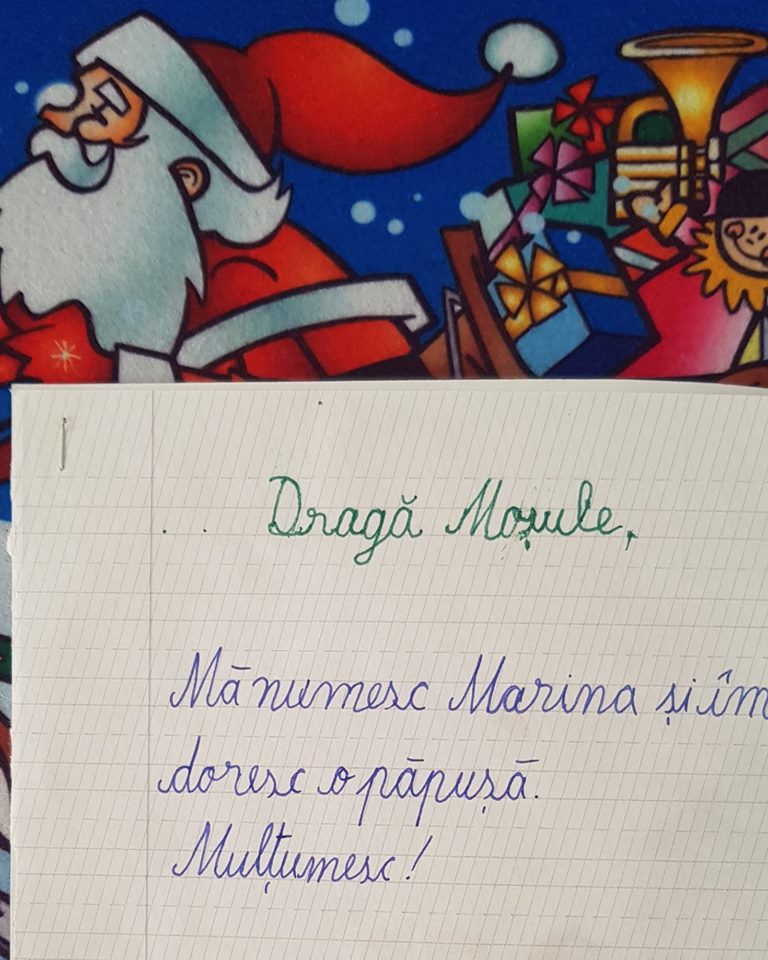 Dragă Moșule,
Mă numesc Marina și îm
doresc o păpușă.
Mulțumesc!